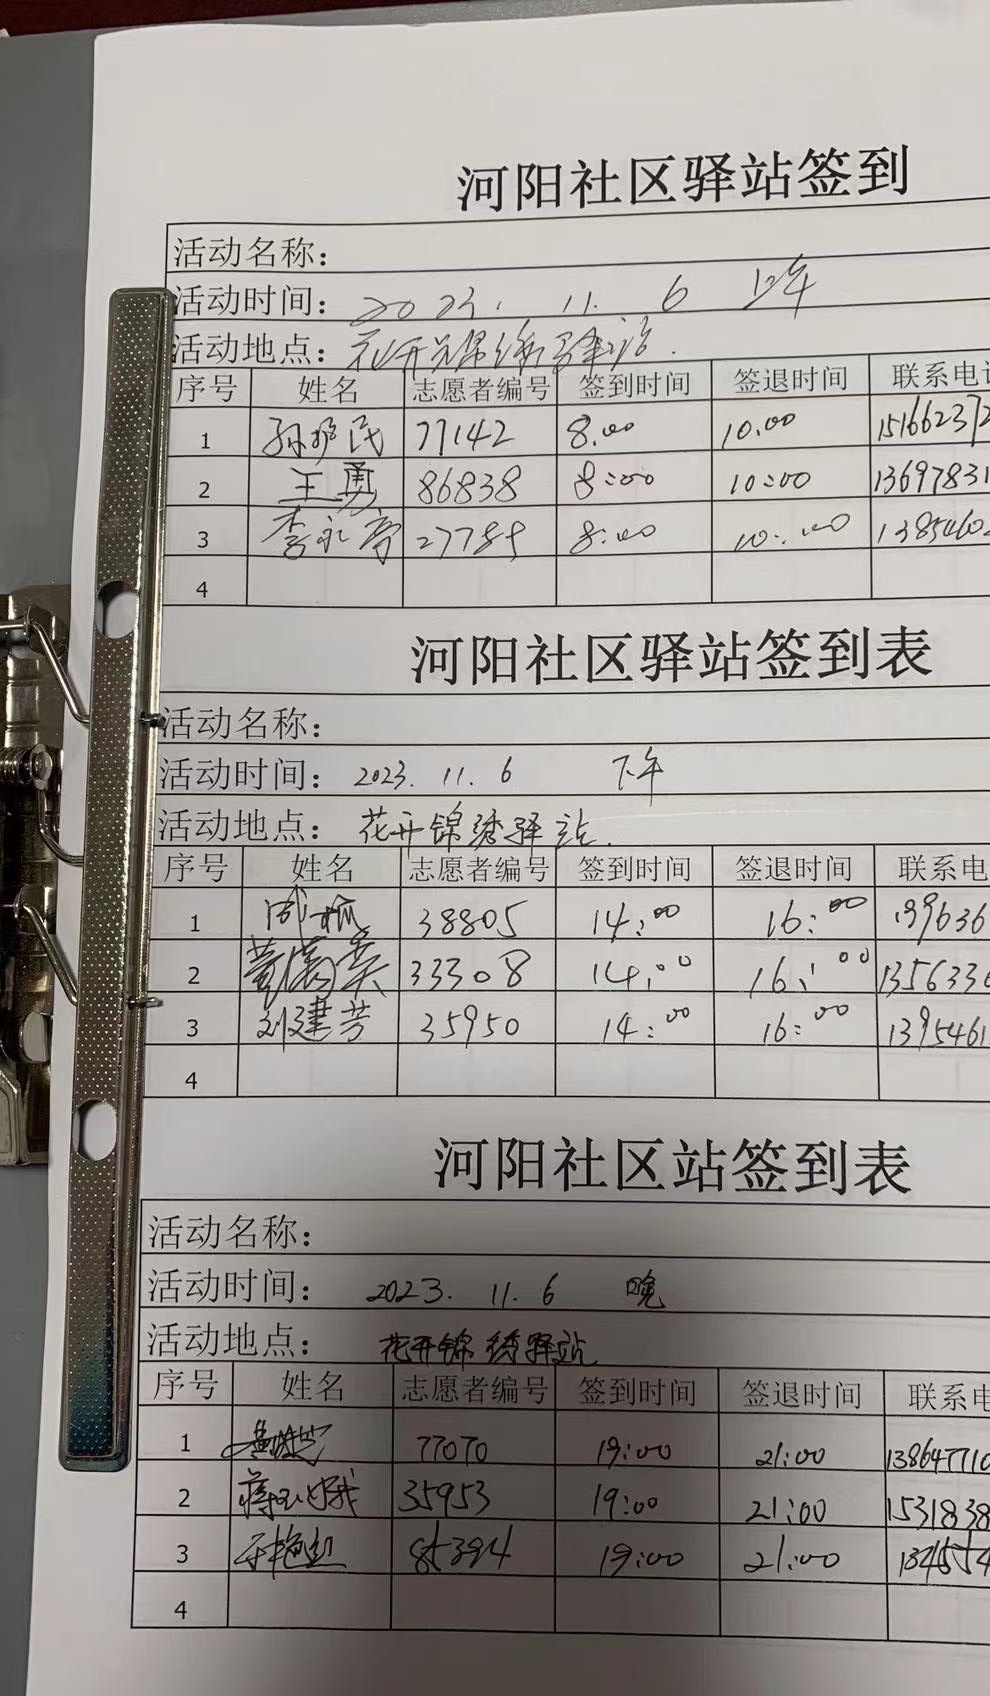 河阳社区驿站签到
活动名称：
活动时间： 2023. 11. 6 上午
活动地点：花开锦绣驿站.
序号 姓名 志愿者编号 签到时间 签退时间 联系电
1 民 77142 8.00 10.00 15166237
2 王勇 86838 8:00 10:00 13697831
3 李 8:00 10:00 1385460
4
河阳社区驿站签到表
活动名称：
活动时间： 2023. 11. 6 下午
活动地点： 花开锦绣驿站.
序号 姓名 志愿者编号 签到时间 签退时间 联系电
1 38805 14:00 16:00 139636
2 黄 33308 14:00 16:00 1356336
3 刘建芳 35950 14:00 16:00 1395461
4
河阳社区站签到表
活动名称：
活动时间： 2023. 11. 6 晚
活动地点： 花开锦绣驿站
序号 姓名 志愿者编号 签到时间 签退时间 联系电
1 77070 19:00 21:00 138647710
2 35953 19:00 21:00 1531838
3 85394 19:00 21:00
4